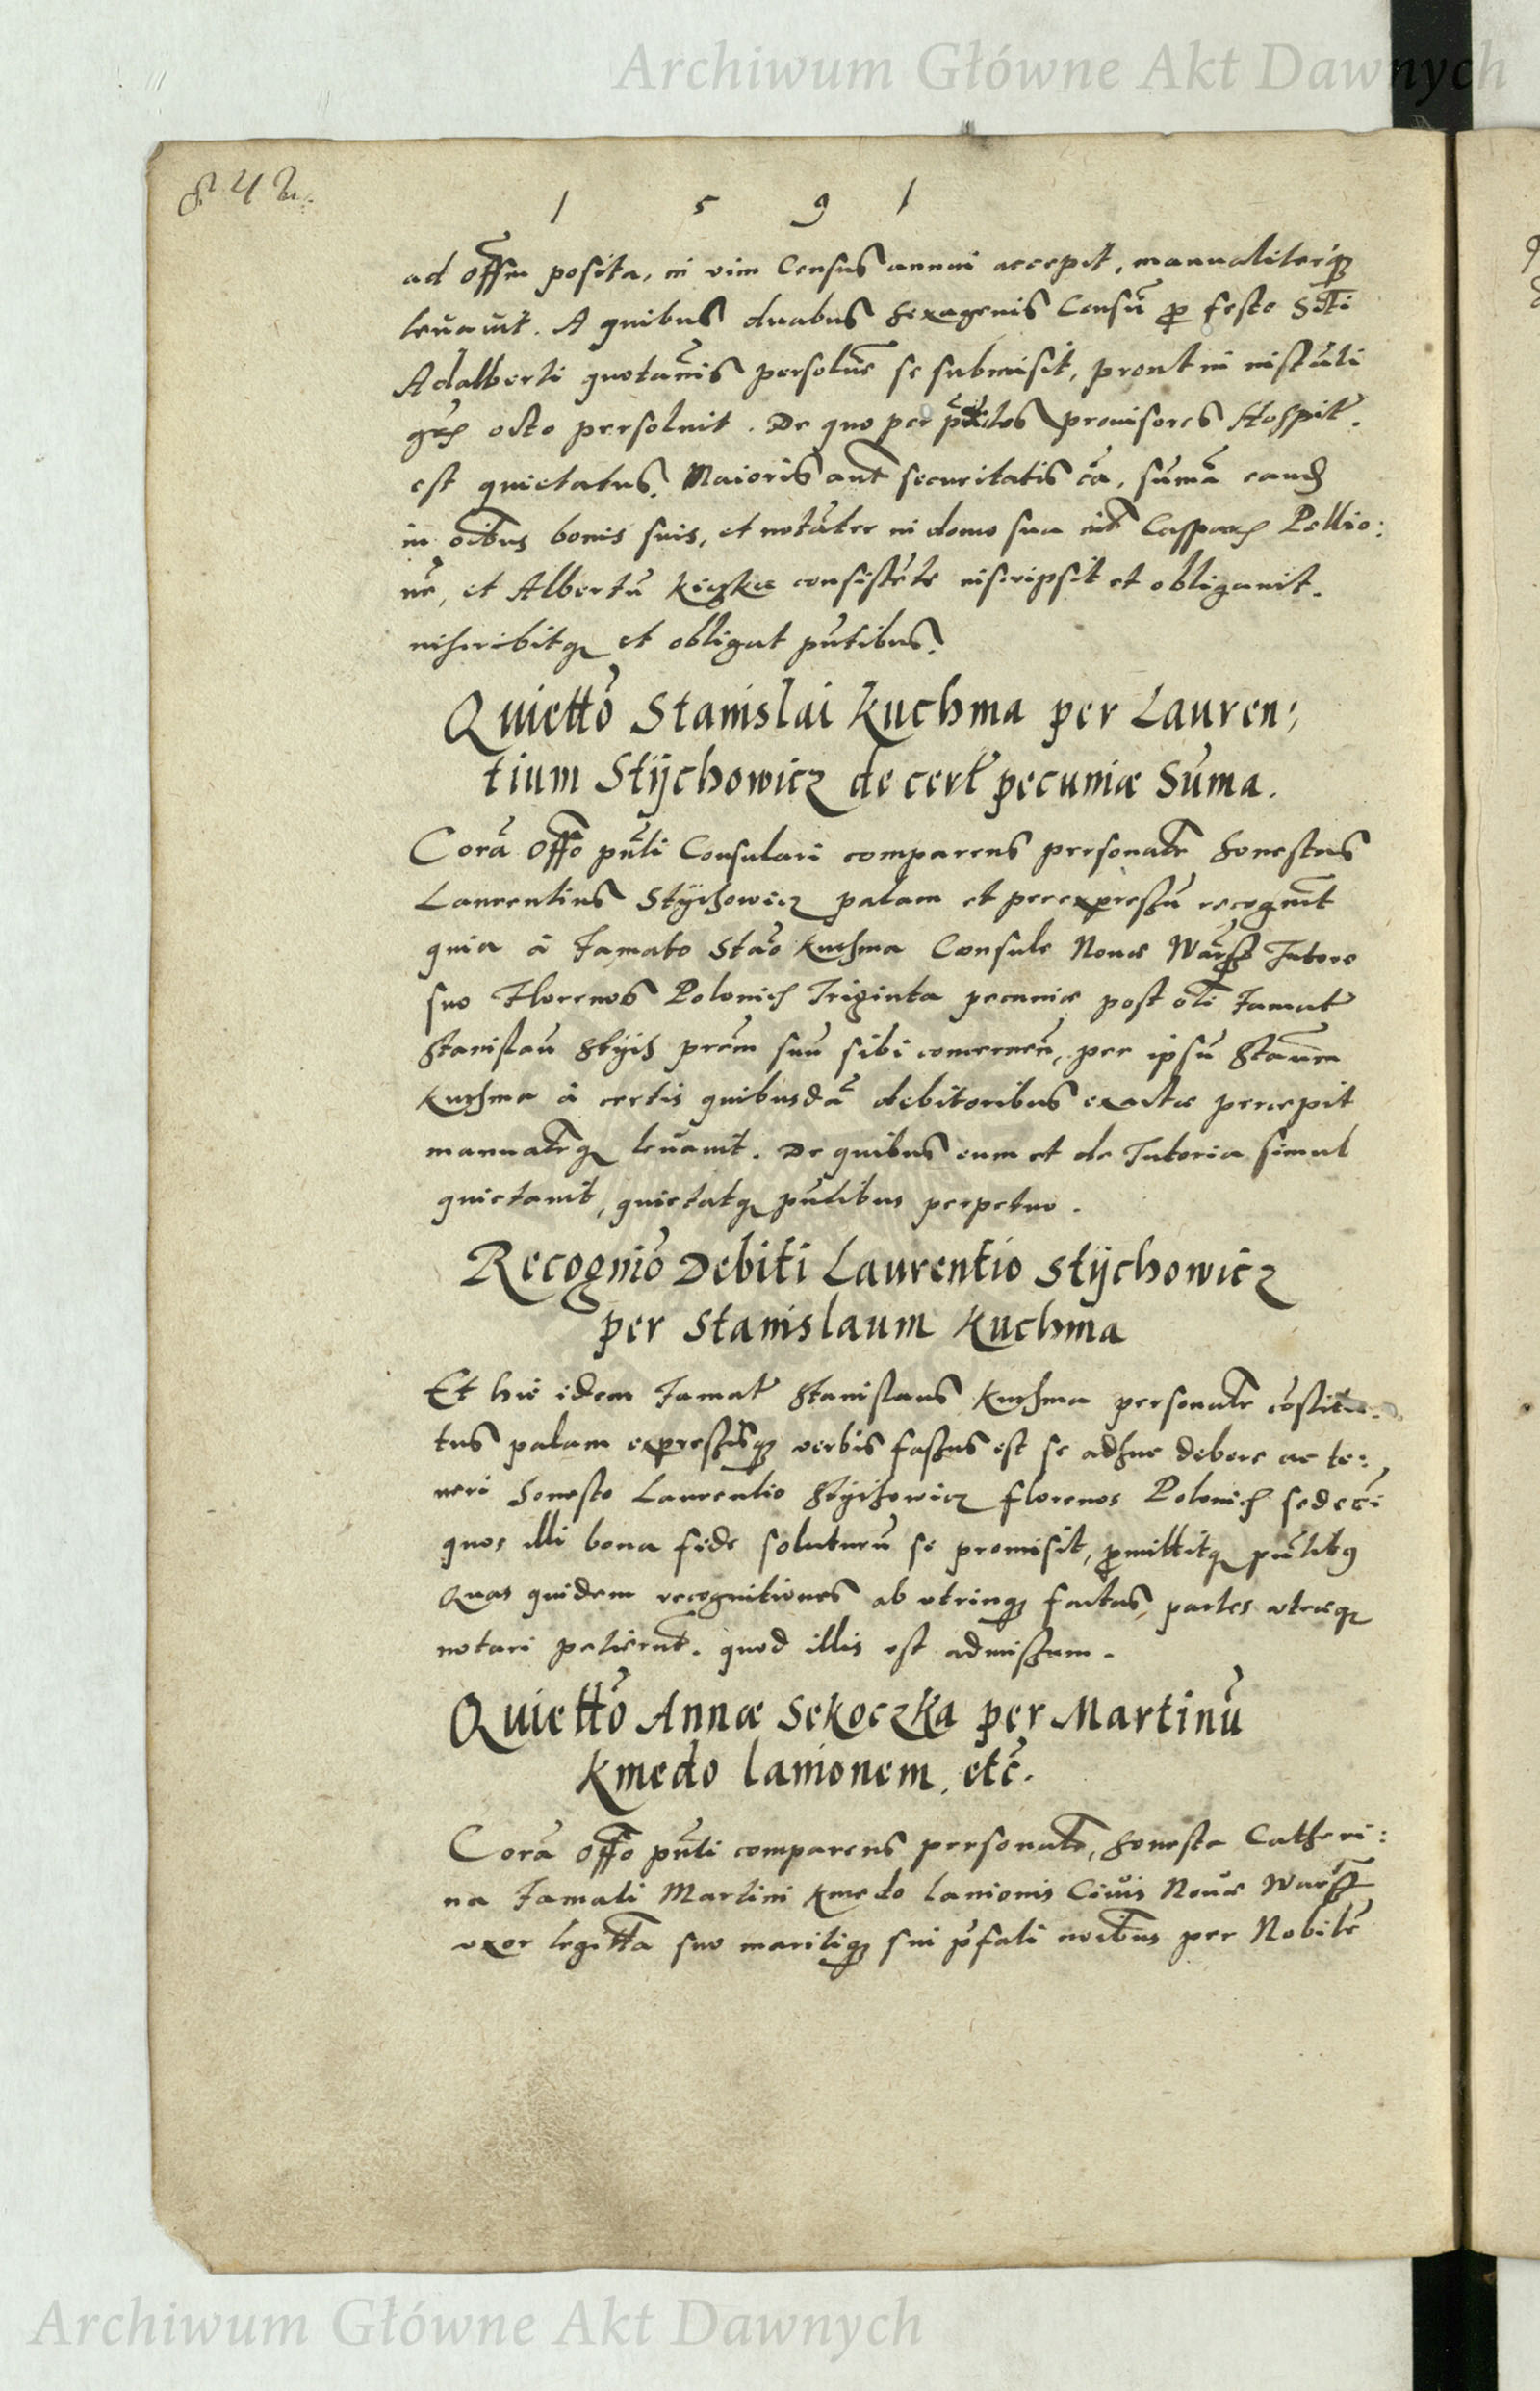 Archiwum Główne Akt Dawnych
842.
1 5 9 1
ad offm posita, in vim Census annui accepit, manualiterq3
levavit. A quibus duabus sexagenis Censū p festo Scti
Adalberti quotañis persolūe se submisit, prout in instāti
octo persoluit. De quo per prouisores Hospit.
est quietatus. Maioris aut securitatis cā, sumā eand
in oibus bonis suis, et notāter in domo sua int Casparū Pellio:
nē, et Albertū consistētē inscripsit et obligauit.
inscribitq et obligat pntibus.
Quietto Stanislai Kuchma per Lauren:
tium Stÿchowicz de cert pecuniæ Suma.
Corā Offo pnti Consulari comparens personatr honestus
Laurentius Stÿchowicz palam et per expressū recognit
quia à famato Stao Kuchma Consule Nouæ Wars Tutore
suo Florenos Polonic Triginta pecuniæ post oli famat
Stanislaū Stÿch prem suū sibi concernen, per ipsū Staum
Kuchma à certis quibusdā debitoribus exactæ percepit
manuatrq levavit. De quibus eum et de Tutoria simul
quietavit, quietatq pntibus perpetuo.
Recognio Debiti Laurentio Stÿchowicz
per Stanislaum Kuchma
Et hic idem famat Stanislaus Kuchma personatr cōstitu:
tus palam expressisq3 verbis fassus est se adhuc debere ac te:
neri honesto Laurentio Stÿchowicz florenos Polonic sedeci
quos illi bona fide soluturū se promisit, pmittitq pntib9
Quas quidem recognitiones ab utrinq3 factas partes utræq
notari petierut. quod illis est admissum.
Quietto Annæ Sekoczka per Martinū
Kmedo lanionem, etc.
Corā Offo pnti comparens personatr, honesta Catheri:
na famati Martini Kmedo lanionis Civis Nouæ Wars
uxor legitta suo maritiq3 sui pfati noibus per Nobilē
Archiwum Główne Akt Dawnych